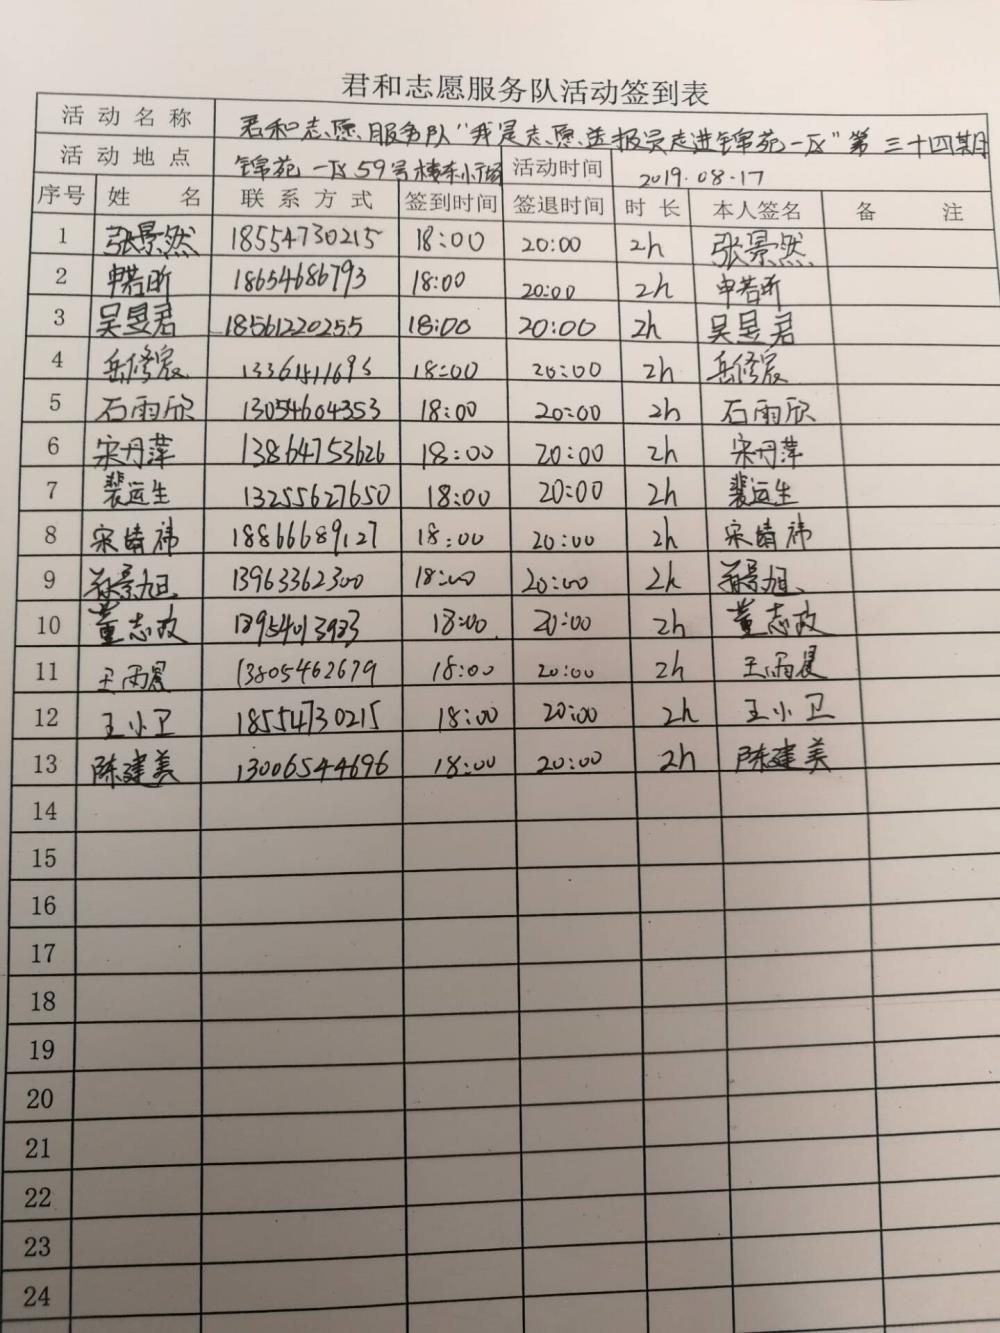 君和志愿服务队活动签到表
活动名称 君和志愿服务队“我是志愿送报员走进锦苑一区”第三十四期
活动地点 锦苑一区59号楼东小广场 活动时间 2019.08.17
序号 姓名 联系方式 签到时间 签退时间 时长 本人签名 备注
1 张景然 18554730215 18:00 20:00 2h 张景然
2 申若昕 18654686793 18:00 20:00 2h 申若昕
3 吴昱君 18561220255 18:00 20:00 2h 吴昱君
4 岳修宸 18:00 20:00 2h 岳修宸
5 石雨欣 13054604353 18:00 20:00 2h 石雨欣
6 宋丹萍 13864753626 18:00 20:00 2h 宋丹萍
7 裴运生 13255627650 18:00 20:00 2h 裴运生
8 宋婧祎 18866689127 18:00 20:00 2h 宋婧祎
9 13963362300 18:00 20:00 2h
10 董志政 18:00 20:00 2h 董志政
11 王雨晨 13805462679 18:00 20:00 2h 王雨晨
12 王小卫 18554730215 18:00 20:00 2h 王小卫
13 陈建美 13006544696 18:00 20:00 2h 陈建美
14
15
16
17
18
19
20
21
22
23
24